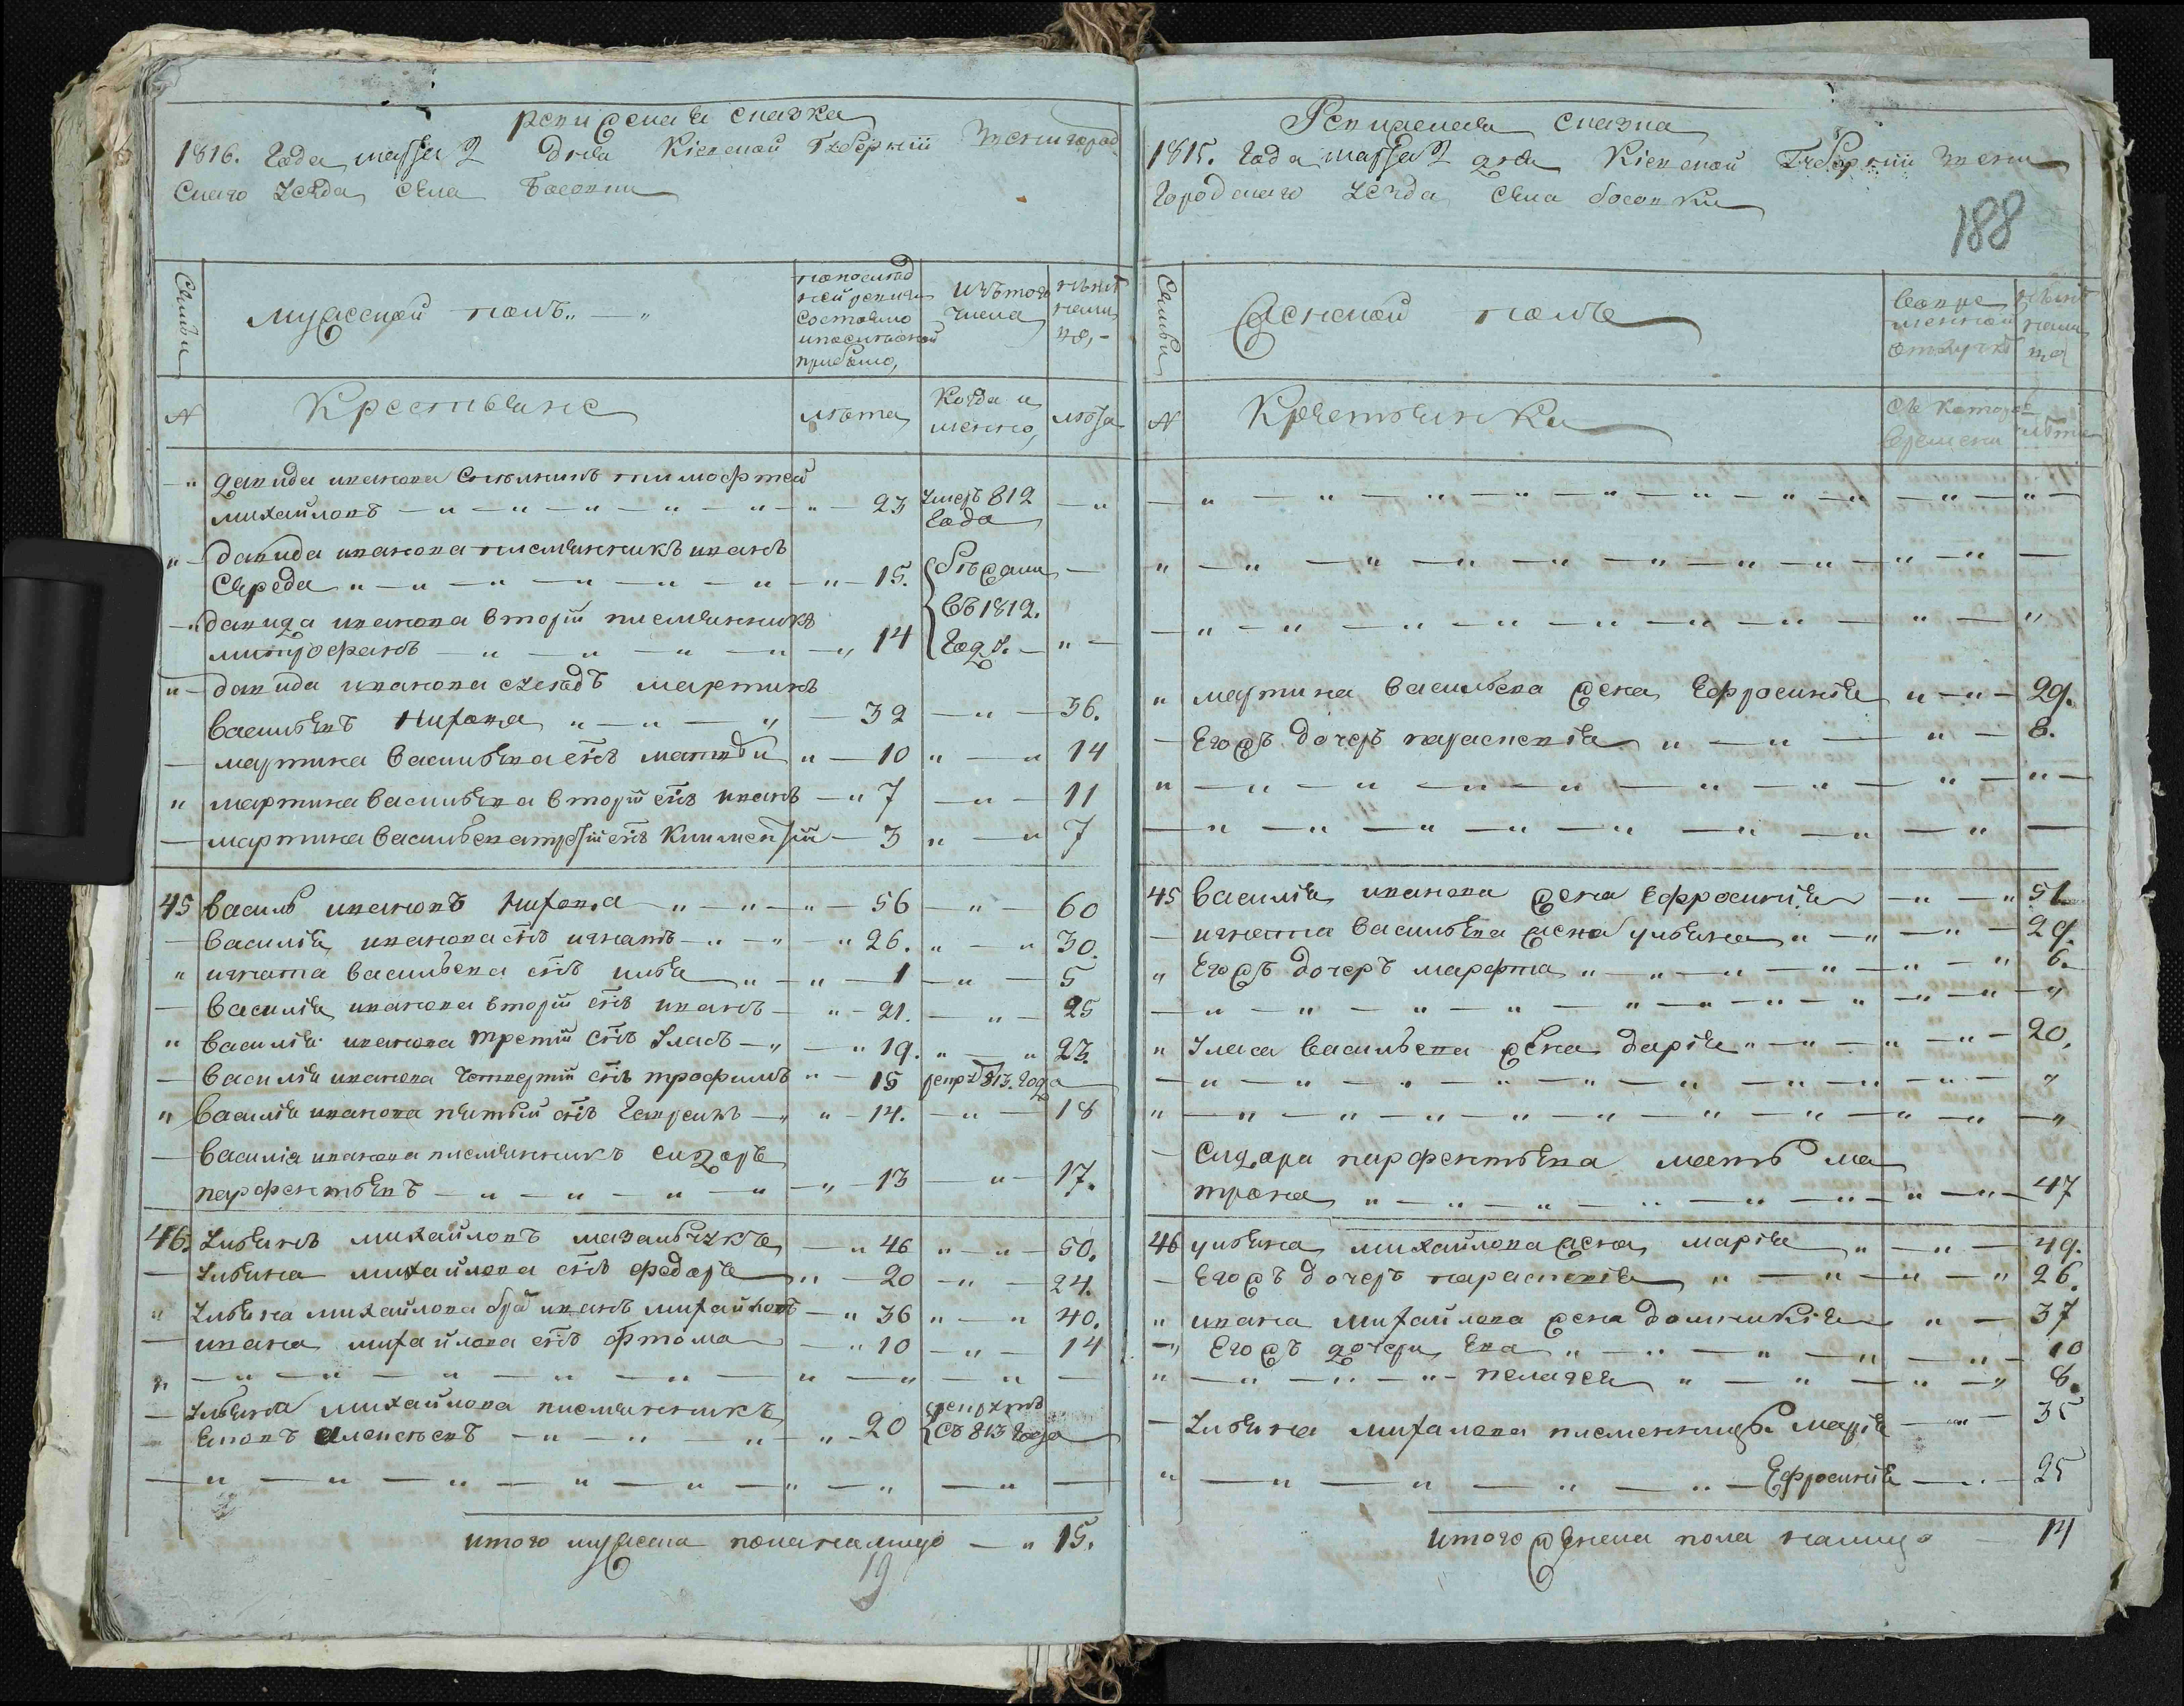 ревижская сказка
1816. года марта 2 дня Кіевской Губерніи Звенигород
скаго уезда села Босовки
Семьи
мужеской полъ
по послед
ней ревизіи
состояло
и после оной
прибыло,
изътого
числа
ныне
нали
цо,
№
Крестьяне
лета
Когда и
менно,
лета
" давида иванова тимофтей
михайловъ — " — " — 23 умеръ 812 — "
года
" давида иванова племянникъ иванъ
Середа " — " — 15. бежали —
въ 1812.
" давида иванова вторій племянникъ
митрофанъ — " — " — 14 году. — " —
" давида иванова суседъ мартинъ
васильевъ " — " — 32 — " — 36.
— мартина васильева снъ матвей " — 10 " — " 14
" мартина васильева вторій снъ иванъ — " 7 — " — 11
— мартина васильева третій снъ Климентій — 3 " — " 7
45 василь ивановъ " — " — " — 56 — " — 60
— василія иванова снъ игнатъ — " — " 26. " — " 30.
" игната васильева снъ илья " — " — 1 — " — 5
— василія иванова вторій снъ иванъ — " — 21. — " — 25
" василія иванова третій снъ уласъ — " — " 19. " — " 23.
— василія иванова четвертій снъ трофимъ " — 15 рекрут 813. года
" василія иванова пятый снъ гаврило — " " — 14. — " — 18
— василія иванова племянникъ сидоръ
парфентьевъ — " — " — " — " — 13 — " — 17.
46. ульянъ михайловъ — " 46 " — " — 50.
— ульяна михайлова снъ федоръ " — 20 — " — 24.
" ульяна михайлова братъ иванъ михайловъ — " 36 " — " 40.
— ивана михайлова снъ фтома — " 10 — " — 14
" — " — " — " — " — " — " — " — " —
— ульяна михайлова племянникъ
алексеевъ — " — " — " — 20 рекрутъ
съ 813 года
— " — " — " — " — " — " — " — " —
итого мужеска пола налицо — " 15.
19
Ревижская сказка
1815. года марта 2 дня Кіевской Губерніи Звени
городскаго уезда села босовки
188
Семьи
Женской полъ
вовре
менной
отлучке
ныне
нали
цо
№
Крестьянки
съ котораго
времени
лета
— " — " — " — " — " — " — " — " —
" — " — " — " — " — " — " — " —
— " — " — " — " — " — " — " — "
" мартина васильева жена Ефросинія " — " — 29.
— Егожъ дочеръ параскевія " — " — " — 8.
" — " — " — " — " — " — " — " —
— " — " — " — " — " — " — " —
45 василія иванова жена ефросинія — " — " 51
— игната васильева жена ульяна " — " — " — 29.
" Егожъ дочеръ марфта " — " — " — " — 6.
— " — " — " — " — " — " — " — "
" уласа васильева жена дарія " — " — " — " — 20.
— " — " — " — " — " — " — " — "
" — " — " — " — " — " — " — "
— сидора парфентьева мать ма
трона " — " — " — " — " — " — 47
46 ульяна михайлова жена марія " — " — 49.
— Егожъ дочеръ параскевія " — " — " — " 26.
" ивана михайлова жена домникія " — 37
— " Егожъ дочери Ева " — " — " — " — 10
" — " — " — " — пелагея " — " — " — " 8.
— ульяна михалова племенницы марія — " — 35
" — " — " — " — " — Ефросинія — " — 25
итого женска пола налицо — 14